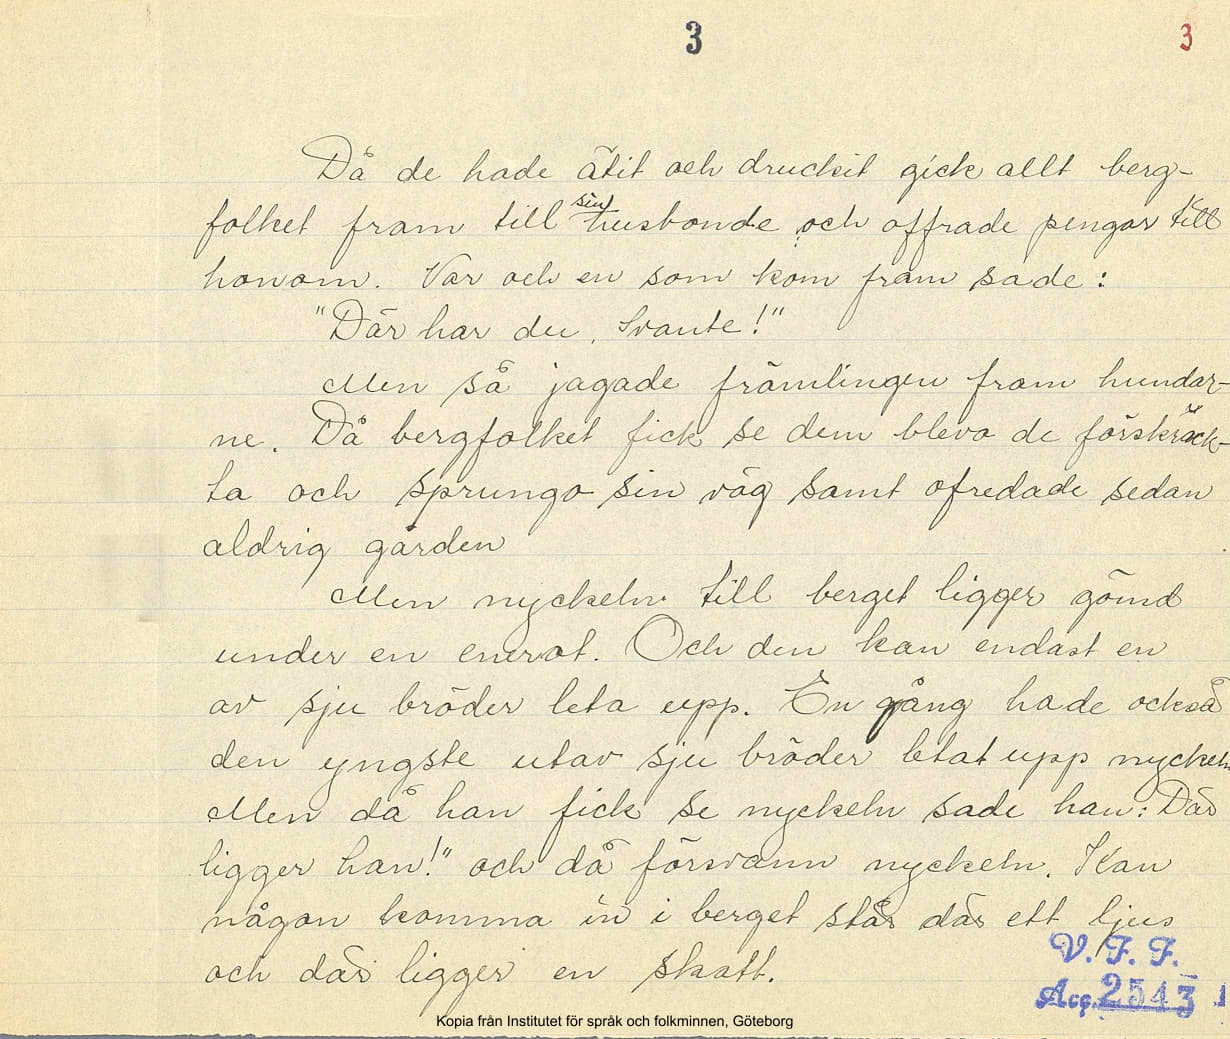 3 3
Då de hade ätit och druckit gick allt berg-
folket fram till sin husbonde och offrade pengar till
honom. Var och en som kom fram sade:
"Där har du, Svante!"
Men så jagade främlingen fram hundar-
ne. Då bergfolket fick se dem blevo de förskräck-
ta och sprungo sin väg samt ofredade sedan
aldrig gården
Men nyckeln till berget ligger gömd
under en enrot. Och den kan endast en
av sju bröder leta upp. En gång hade också
den yngste utav sju bröder letat upp nyckeln
Men då han fick se nyckeln sade han: Där
ligger han!" och då försvann nyckeln. Kan
någon komma in i berget står där ett ljus
och där ligger en skatt.
V. F. F.
Acc. 2543 1
Kopia från Institutet för språk och folkminnen, Göteborg